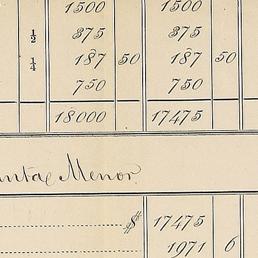 1500 1500
½ 375 375
¼ 187 50 187 50
750 750
18000 17475
Menor
$ 17475
1971 6